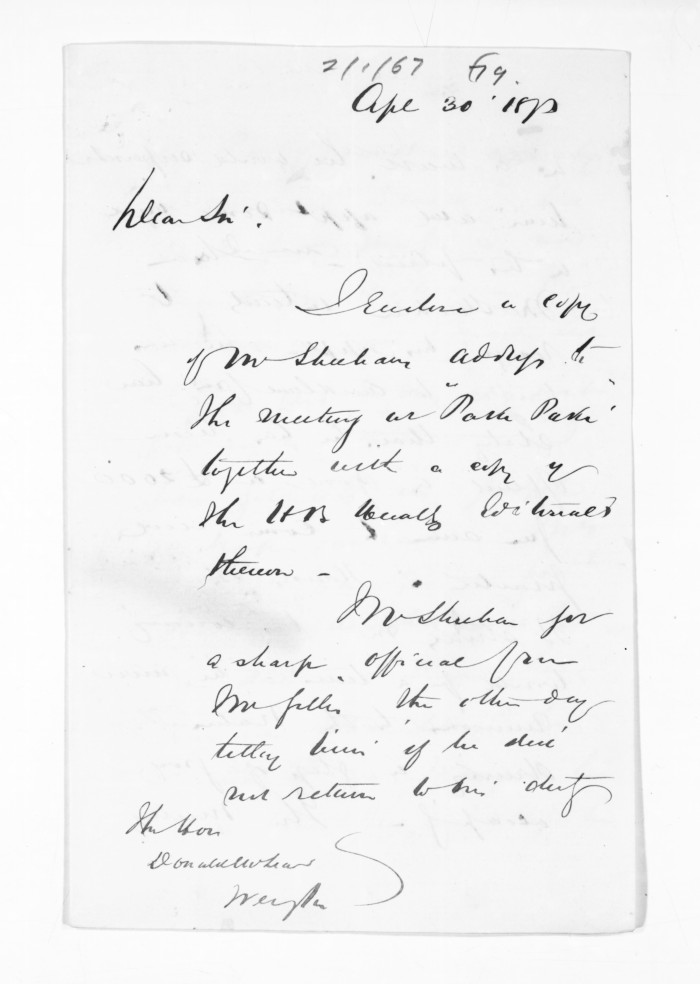 2/1/67 Fg.
Apl 30 187
Dear Sir,
I Enclose a copy
of Mr Sheehans address to
the meeting at "Paki Paki"
together with a copy of
the HB Heralds Editorial
thereon –
Mr Sheehan got
a sharp official from
Mr Gill the other day
telling him if he did
not return to his duty
The Hon
Donald McLean
Wengtn